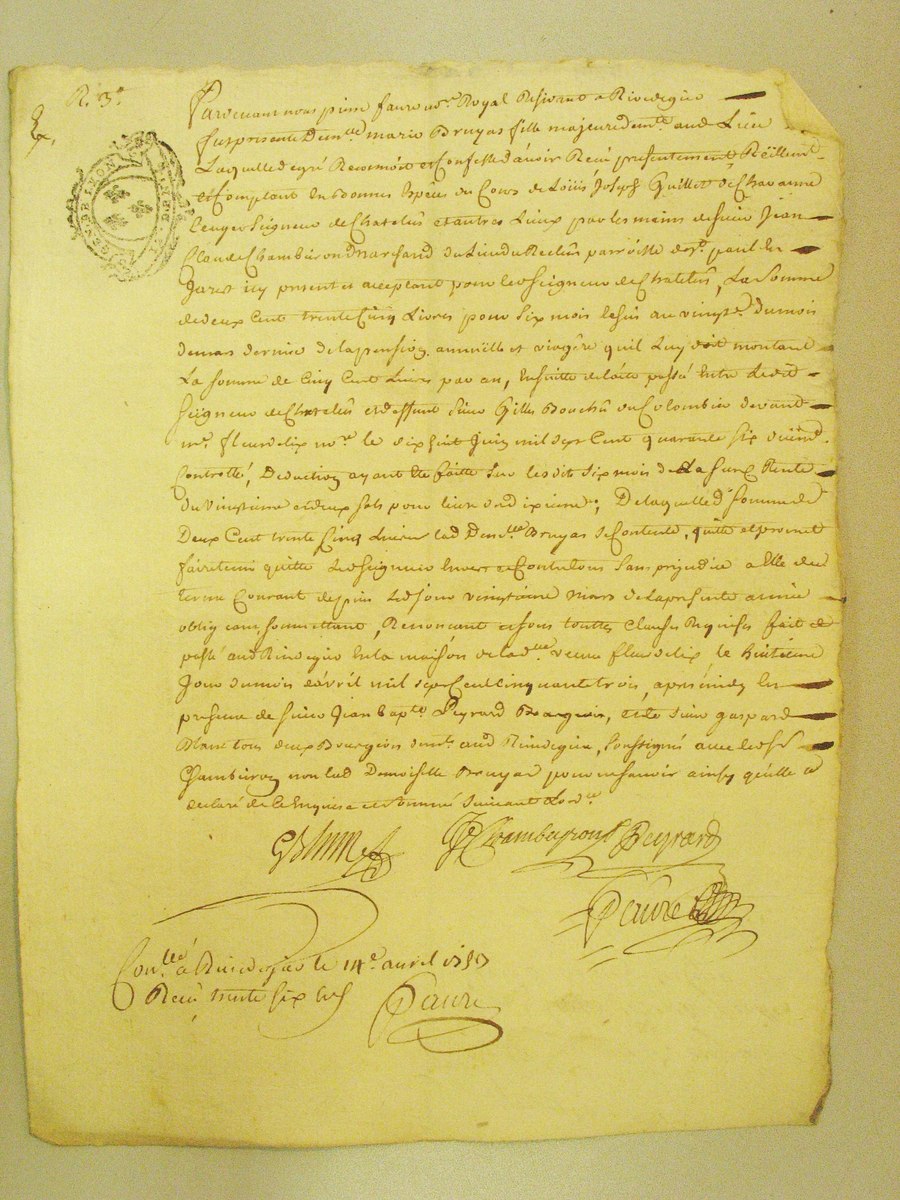 R. 3e
GEN. DE LYON
Pardevant nous pierre faure nore. Royal Residant a Rivedegier
fut presente Demlle marie Bruyas fille majeure demte. aud. Lieu
Laquelle de gré Reconnoit et Confesse d'avoir Recu presentement Réellemt.
et Comptant en bonnes Espèces du Cours de Loüis Joseph Guillet de Chavanne
Seigneur de Chatelus et autres Lieux par les mains de sieur Jean
Claude Chambeiron marchand du Lieu du Reclus parroisse de st. paul En
Jarest icy present et acceptant pour led. seigneur de Chatelus, La somme
de deux Cent trente Cinq Livres pour six mois Echus au vingte. du mois
de mars dernier de la pension annuelle et viagère quil Luy doit montant
La somme de Cinq Cent Livres par an, Ensuitte de l'acte passé Entre Ledit
seigneur de Chatelus et deffunt sieur Gilles Bouchu du Colombier devant
me. fleurdelix nore. le dix sept Juin mil sept Cent quarante six düemt.
Controllé, Deduction ayant été faitte sur lesdits six mois de La susd. Rente
du vingtieme et deux sols pour livre du dixieme; De laquelle d. somme de
Deux Cent trente Cinq Livres lad. Demlle. Bruyas se Contente, quitte et promet
faire tenir quitte Led. seigneur Envers et Contre tous sans prejudice a Elle du
terme Courant depuis Led. jour vingtieme mars de la presente année
oblig eant, soumettant, Renonçant et sous touttes Clauses Requises fait et
passé aud. Rivedegier En la maison de lad. lle. veuve fleurdelix le huitieme
Jour du mois d'avril mil sept Cent Cinquante trois, apres midy En
presence de sieur Jean bapte. Peyrard Bourgeois, et de sieur gaspard
Blanc tous deux Bourgeois demts. aud. Rivedegier, soussignés avec led. sr.
Chambeiron non lad. Demoiselle Bruyas pour ne sçavoir ainsy qu'elle a
declaré de ce Enquise et sommée suivant L'ord.ce
GBlanc JC Chambeyron Peyrard
Faure
Conllé. à Rivedegier le 14e. avril 1753
Recu trente six sols
Faure